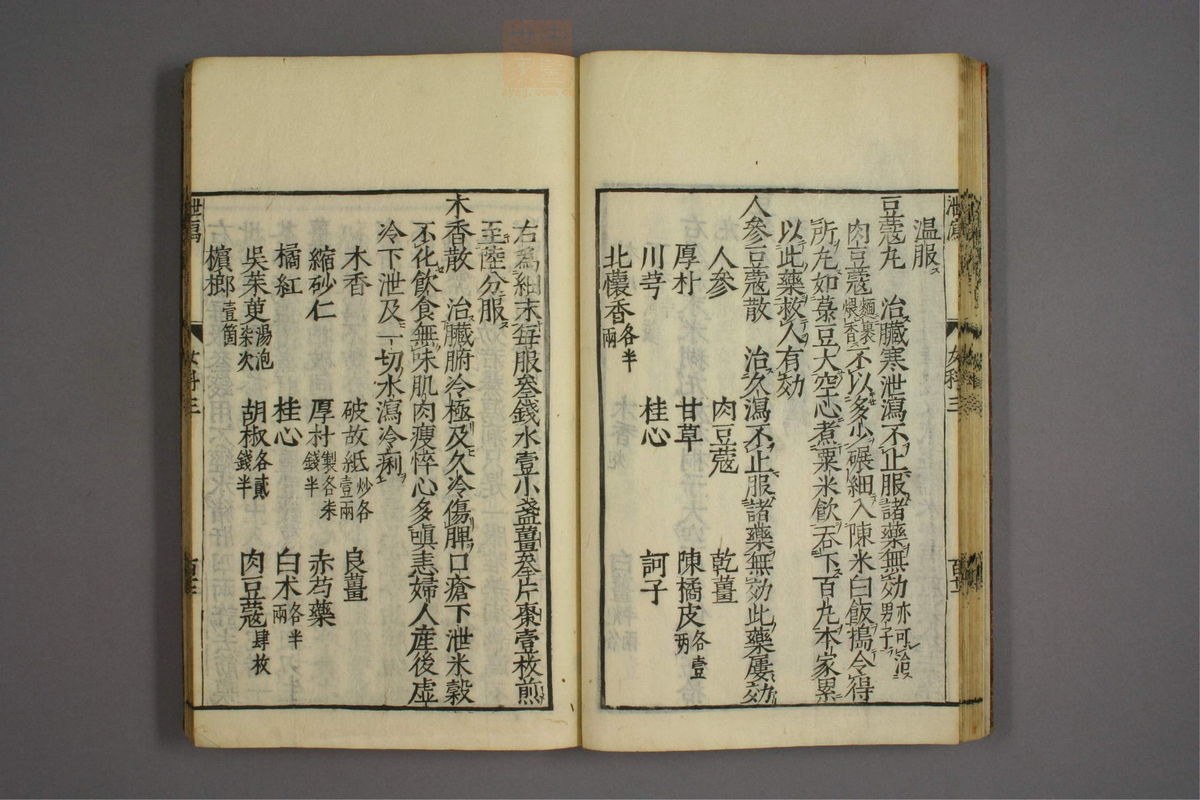 温服
豆蔻丸　治臟寒泄瀉不止服諸藥無効亦可治男子
肉豆蔻麵裹煨香不以多少碾細入陳米白飯搗令得
所丸如菉豆大空心煮粟米飲吞下百丸本家累
以此藥救人有効
人參豆蔻散　治久瀉不止服諸藥無効此藥屢効
人參　肉豆蔻　乾薑
厚朴　甘草　陳橘皮各壹兩
川芎　桂心　訶子
北櫰香各半兩
泄瀉　女科三
右爲細末每服叄錢水壹小盞薑叄片棗壹枚煎
至陸分服
木香散　治臟腑冷極及久冷傷脾口瘡下泄米穀
不化飲食無味肌肉瘦悴心多嗔恚婦人産後虛
冷下泄及一切水瀉冷痢
木香　破故紙炒各壹兩　良薑
縮砂仁　厚朴製各柒錢半　赤芍藥
橘紅　桂心　白术各半兩
吳茱萸湯泡柒次　胡椒各貳錢半　肉豆蔻肆枚
檳榔壹箇
泄瀉　女科三